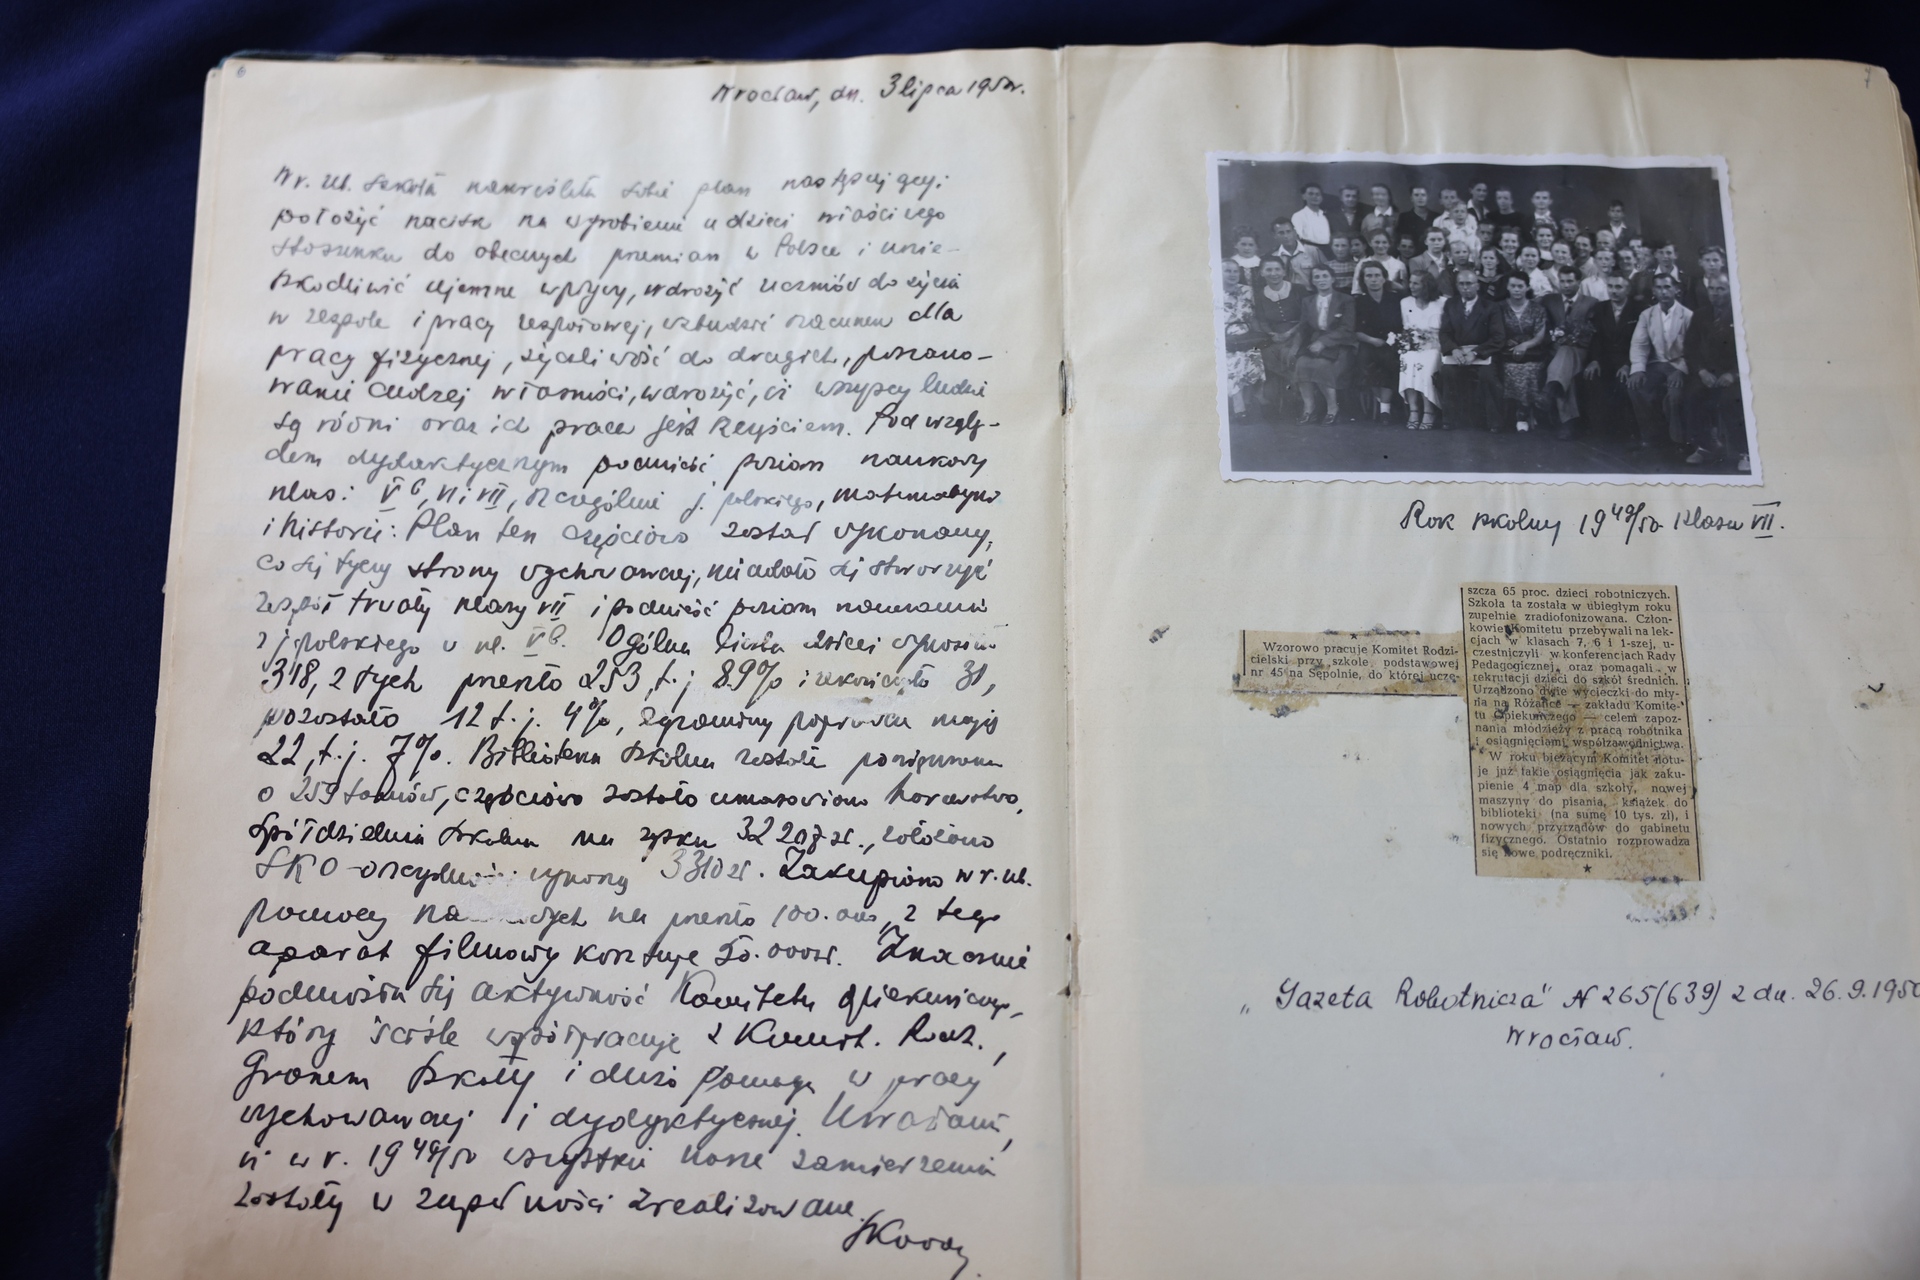 6
Wrocław, dn. 3 lipca 1950r.
W r. ub. szkoła nakreśliła sobie plan następujący:
położyć nacisk na wyrobienie u dzieci właściwego
stosunku do obecnych przemian w Polsce i unie-
szkodliwić ujemne wpływy, wdrożyć uczniów do życia
w zespole i pracy zespołowej, wzbudzić szacunek dla
pracy fizycznej, życzliwość do drugich, poszano-
wanie cudzej własności, wdrożyć, iż wszyscy ludzie
są równi oraz ich praca jest
Pod wzglę-
dem dydaktycznym podnieść poziom naukowy
klas: V b, VI i VII, szczególnie j. polskiego, matematyki
i historii: Plan ten częściowo został wykonany,
co się tyczy strony wychowawczej, nie udało się stworzyć
zespół trwały klasy VII i podnieść poziom nauczania
z j. polskiego w kl. V b. Ogólna liczba dzieci wynosiła
318, z tych przeszło 253, t.j 89% i ukończyło 31,
pozostało 12 t.j. 4%, egzaminy poprawcze mają
22, t.j. 7%. Biblioteka szkolna została powiększona
o 259 tomów, częściowo zostało umasowione harcerstwo,
Spółdzielnia szkolna ma zysku 32 207 zł., założono
SKO - oszczędności wynoszą 3310 zł. Zakupiono w r. ub.
pomocy na ych na przeszło 100.000, z tego
aparat filmowy kosztuje 50.000 zł. Znacznie
podniosła się aktywność Komitetu Opiekuńczego,
który ściśle współpracuje z Komit. Rodz.,
Gronem Szkoły i dużo pomaga w pracy
wychowawczej i dydaktycznej. Uważam,
iż w r. 1949/50 wszystkie nasze zamierzenia
zostały w zupełności zrealizowane.
7
Rok szkolny 1949/50 klasa VII.
Wzorowo pracuje Komitet Rodzi-
cielski przy szkole podstawowej
nr 45 na Sępolnie, do której uczę-
szcza 65 proc. dzieci robotniczych.
Szkoła ta została w ubiegłym roku
zupełnie zradiofonizowana. Człon-
kowie Komitetu przebywali na lek-
cjach w klasach 7, 6 i 1-szej, u-
czestniczyli w konferencjach Rady
Pedagogicznej, oraz pomagali w
rekrutacji dzieci do szkół średnich.
Urządzono dwie wycieczki do mły-
na na Różance — zakładu Komite-
tu Opiekuńczego — celem zapoz-
nania młodzieży z pracą robotnika
i osiągnięciami współzawodnictwa.
W roku bieżącym Komitet notu-
je już takie osiągnięcia jak zaku-
pienie 4 map dla szkoły, nowej
maszyny do pisania, książek do
biblioteki (na sumę 10 tys. zł), i
nowych przyrządów do gabinetu
fizycznego. Ostatnio rozprowadza
się nowe podręczniki.
„Gazeta Robotnicza" N 265(639) z dn. 26.9.1950
Wrocław.